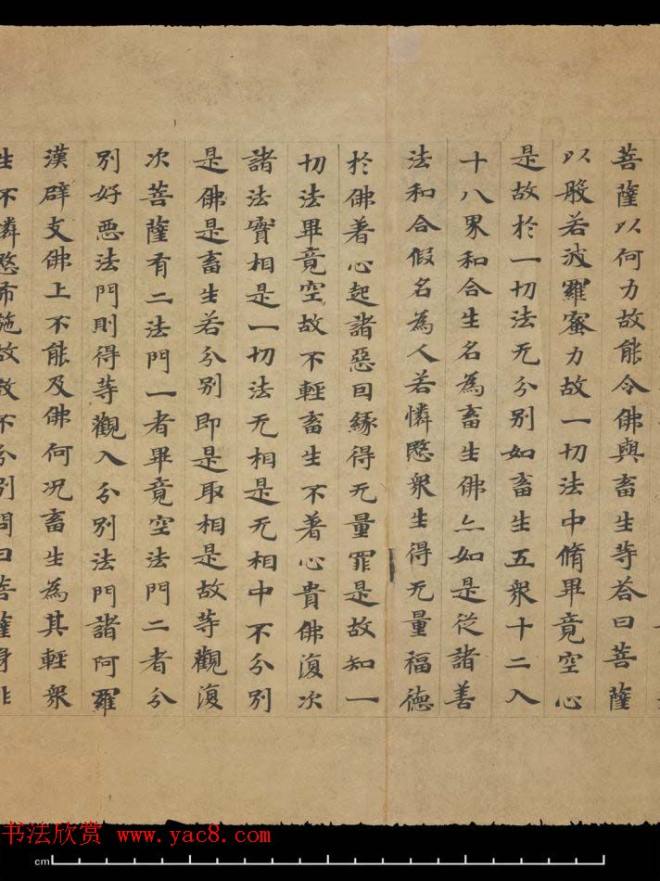 菩薩以何力故能令佛與畜生等荅曰菩薩
以般若波羅蜜力故一切法中脩畢竟空心
是故於一切法无分別如畜生五衆十二入
十八界和合生名為畜生佛亦如是従諸善
法和合假名為人若憐愍衆生得无量福德
於佛著心起諸惡因緣得无量罪是故知一
切法畢竟空故不輕畜生不著心貴佛復次
諸法實相是一切法无相是无相中不分別
是佛是畜生若分別即是取相是故等觀復
次菩薩有二法門一者畢竟空法門二者分
別好惡法門則得等觀入分別法門諸阿羅
漢辟支佛上不能及佛何況畜生為其輕衆
生不憐愍布施故教不分別問曰菩薩身非
书法欣赏 www.yac8.com
cm